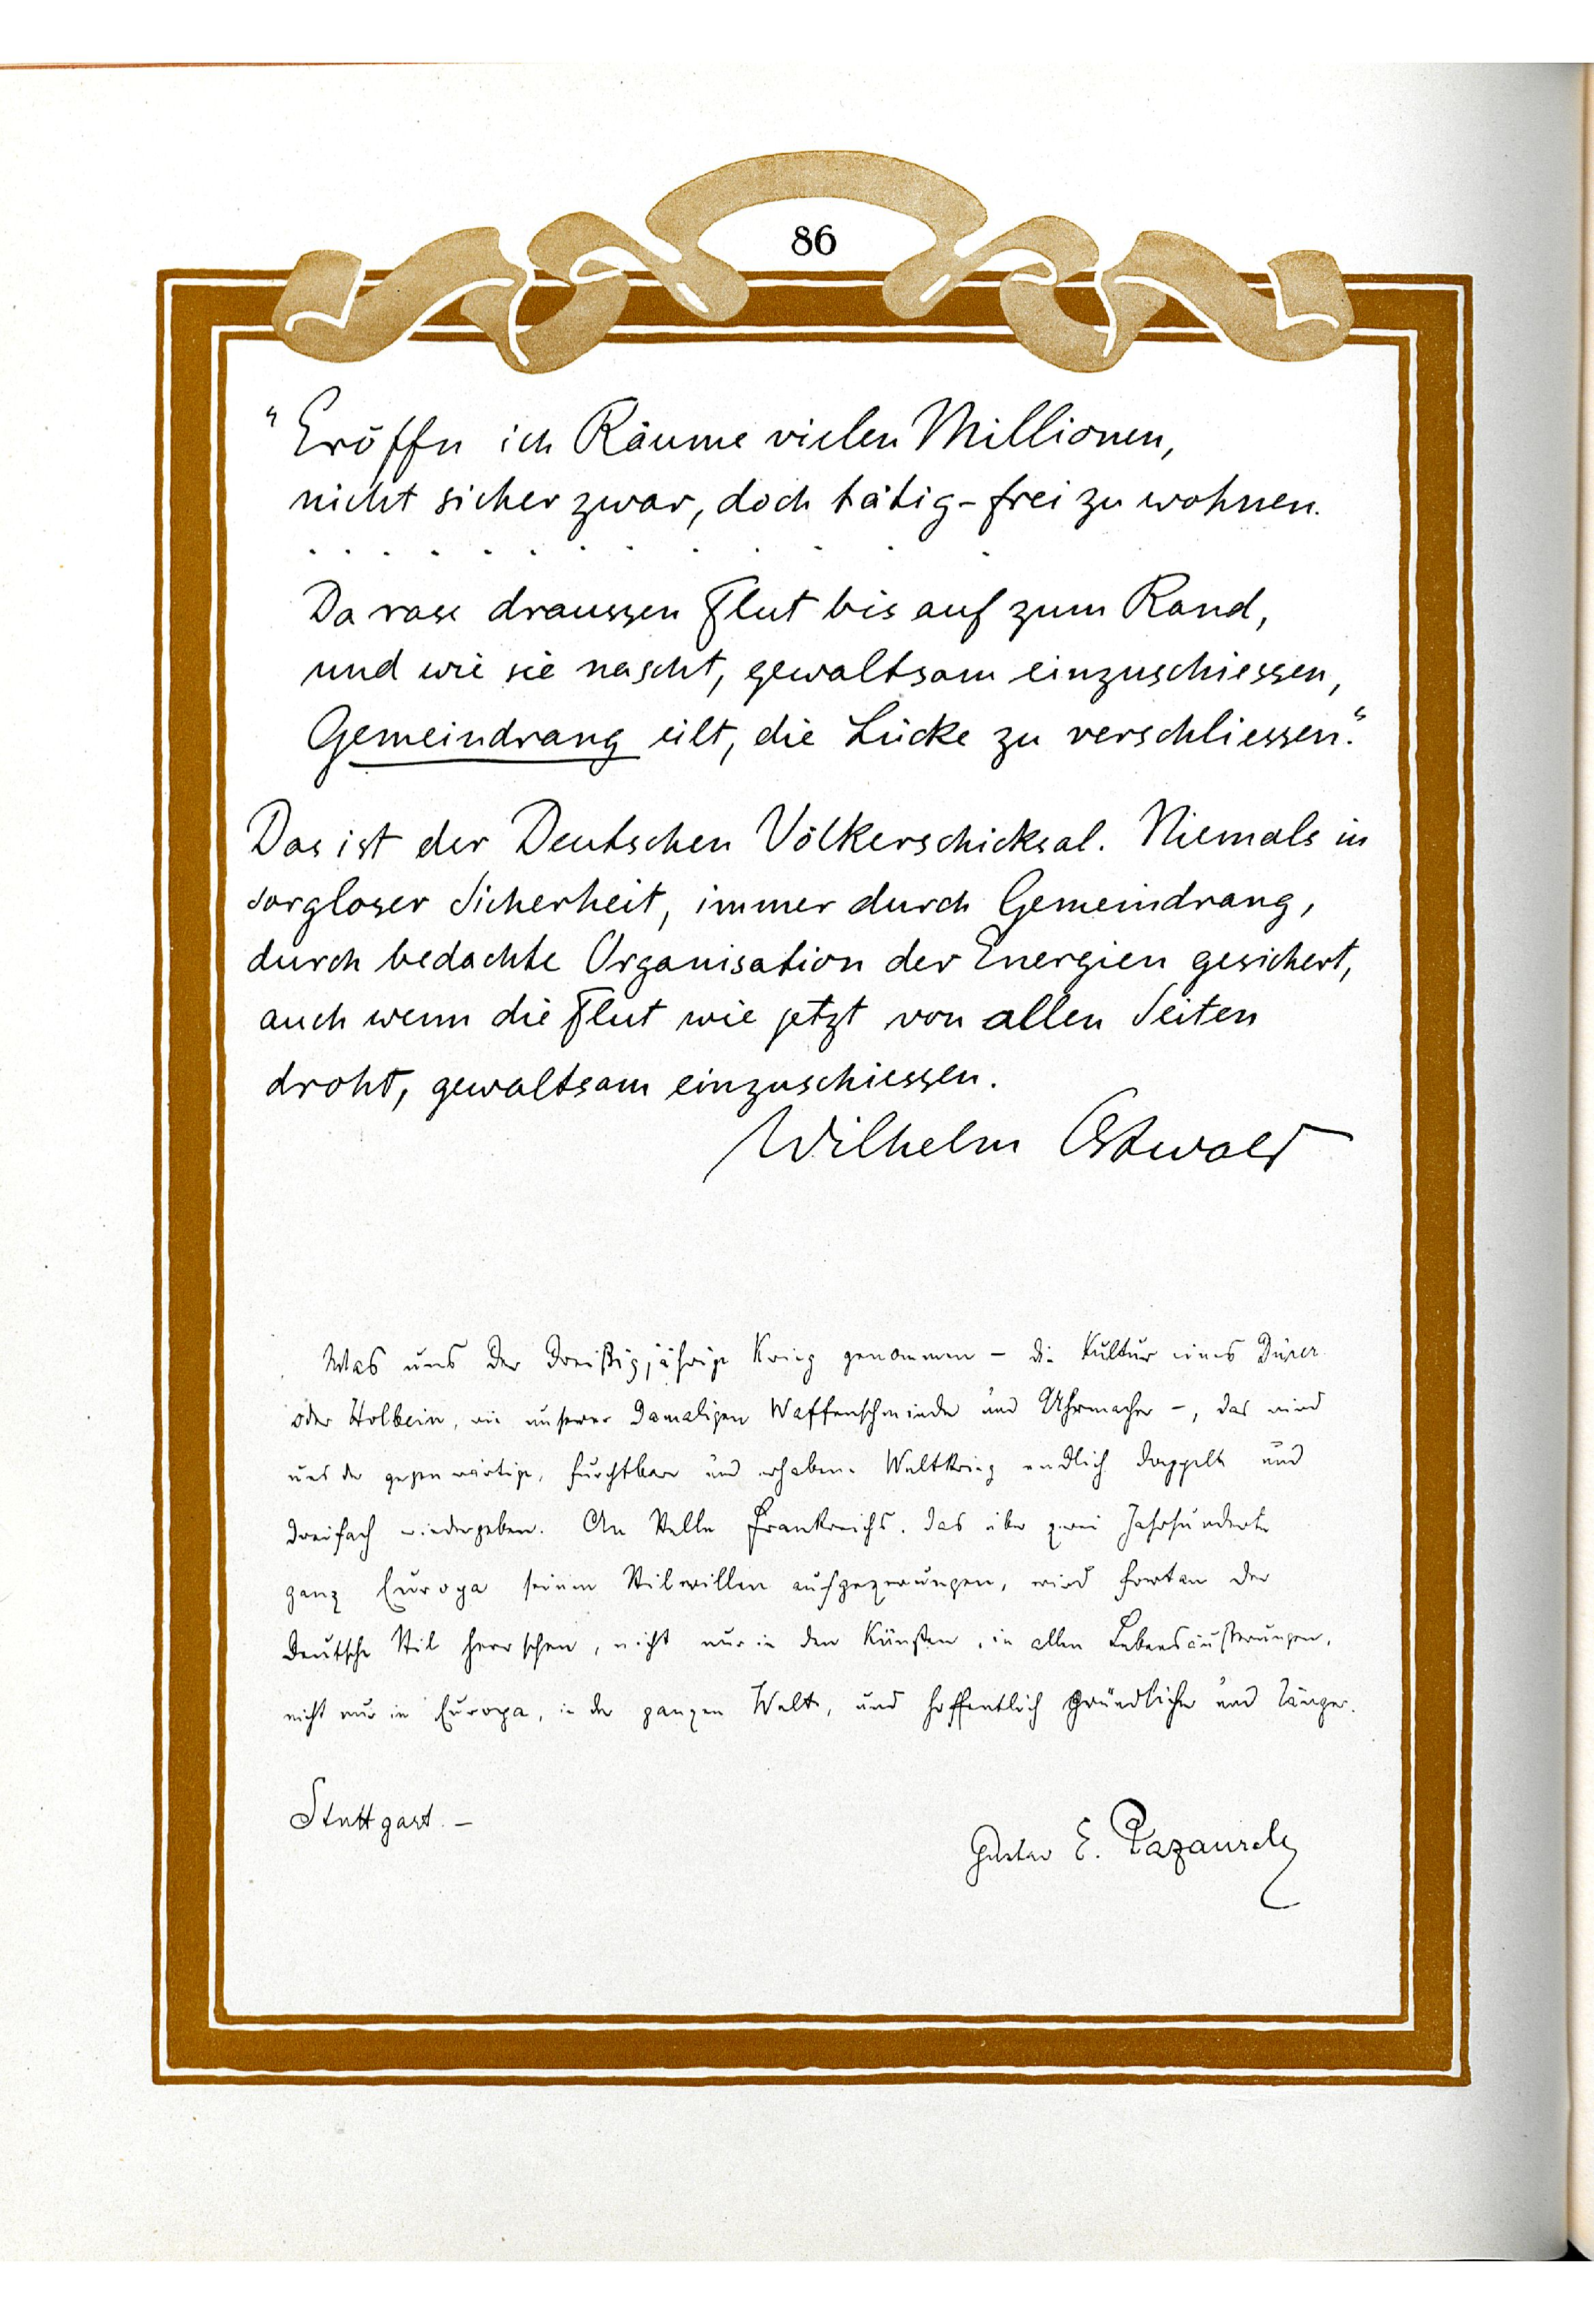 86
"Eröffn ich Räume vielen Millionen,
nicht sicher zwar, doch tätig-frei zu wohnen.
. . . . . . . . . . . . .
Da rase draussen Flut bis auf zum Rand,
und wie sie nascht, gewaltsam einzuschiessen,
Gemeindrang eilt, die Lücke zu verschliessen."
Das ist der Deutschen Völkerschicksal. Niemals in
sorgloser Sicherheit, immer durch Gemeindrang,
durch bedachte Organisation der Energien gesichert,
auch wenn die Flut wie jetzt von allen Seiten
droht, gewaltsam einzuschiessen.
Wilhelm Ostwald
Was uns der Dreißigjährige Krieg genommen – die Kultur eines Dürer
oder Holbein, wie unserer damaligen Waffenschmiede und Uhrmacher –, das wird
uns der gegenwärtige, furchtbare und erhabene Weltkrieg endlich doppelt und
dreifach wiedergeben. An Stelle Frankreichs, das über zwei Jahrhunderte
ganz Europa seinen Stilwillen aufgezwungen, wird fortan der
deutsche Stil herrschen, nicht nur in den Künsten, in allen Lebensäußerungen,
nicht nur in Europa, in der ganzen Welt, und hoffentlich gründlicher und länger.
Stuttgart. –
Gustav E. Pazaurek